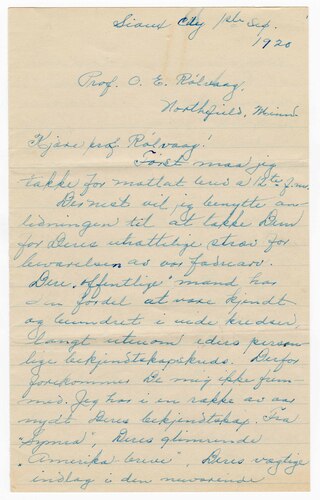 Sioux City 1ste Sep.
1920
Prof. O. E. Rølvaag,
Northfield, Minn.
Kjære prof. Rølvaag!
Først maa jeg
takke for mottat brev a 12te
Dernest vil jeg benytte an-
ledningen til at takke Dem
for Deres utrættelige stræv for
bevarelsen av vor fædrearv.
Dere "offentlige" mænd har
den fordel at være kjendt
og beundret i vide kredser,
langt utenom eders person-
lige bekjendtskapskreds. Derfor
forekommer De mig ikke frem-
med. Jeg har i en række av aar
nydt Deres bekjendtskap. Fra
"Symra", Deres glimrende
"Amerika breve", Deres vægtige
indlæg i den nuværende